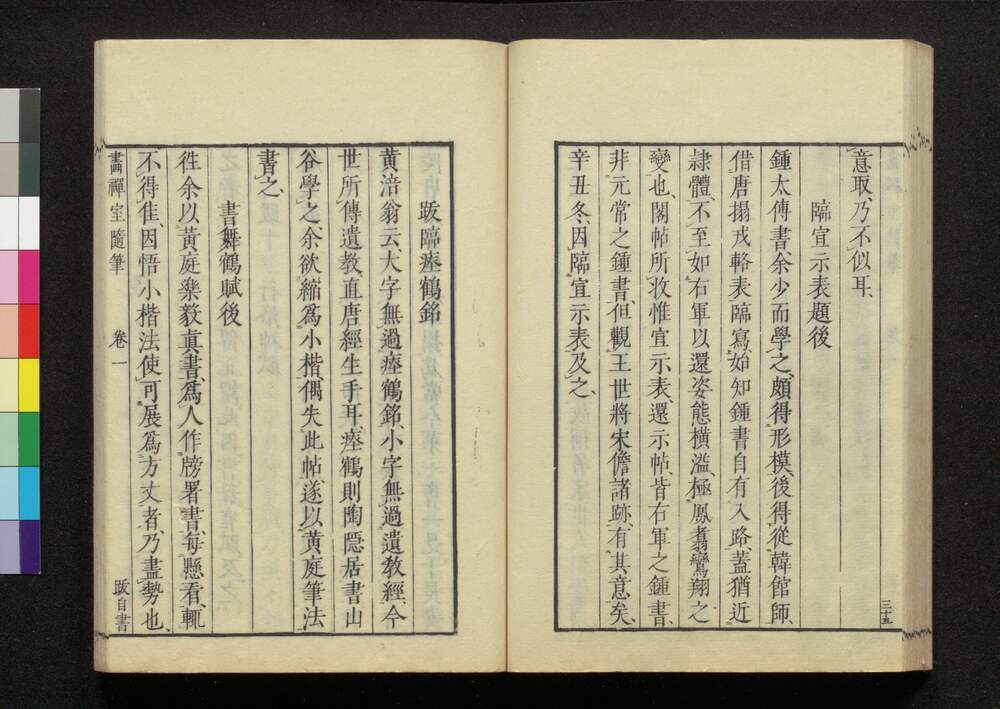 意取、乃不似耳、
臨宣示表題後
鍾太傅書、余少而學之、頗得形模、後得從韓館師、
借唐搨戎輅表臨寫、始知鍾書自有入路、葢猶近
隷體、不至如右軍以還姿態橫溢、極鳳翥鸞翔之
變也、閣帖所收惟宣示表、還示帖、皆右軍之鍾書、
非元常之鍾書、但觀王世將宋儋諸跡、有其意矣、
辛丑冬、因臨宣示表及之、
三十五
跋臨瘞鶴銘
黃涪翁云、大字無過瘞鶴銘、小字無過遺敎經、今
世所傳遺敎、直唐經生手耳、瘞鶴則陶隱居書、山
谷學之、余欲縮爲小楷、偶失此帖、遂以黃庭筆法
書之、
書舞鶴賦後
徃余以黃庭樂毅眞書爲人作牓署書、每懸看、輒
不得佳、因悟小楷法使可展爲方丈者、乃盡勢也、
畵禪室隨筆 卷一 跋自書